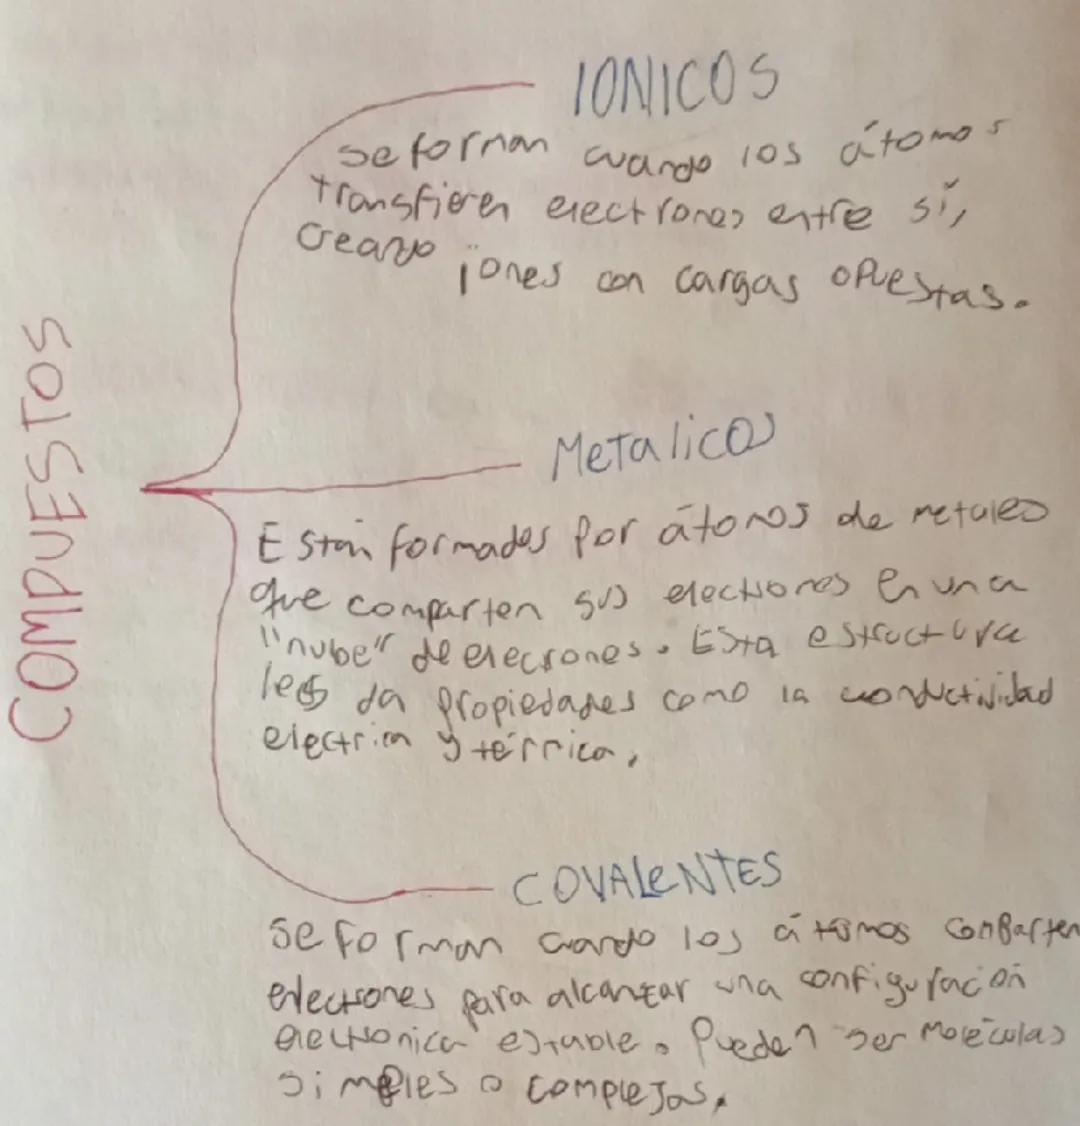 COMPUESTOS
IONICOS
se forman cuando los átomos
transfieren electrones entre sí,
creando iones con cargas opuestas.
Metalicos
Están formados por átomos de metales
que comparten sus electrones en una
"nube" de elecrones. Esta estructura
les da propiedades como la conductividad
electrica y térmica,
COVALeNTES
Se forman cuando los átomos comparten
electrones para alcantar una configuración
electronica estable. Pueden ser Moléculas
simples o complejas.